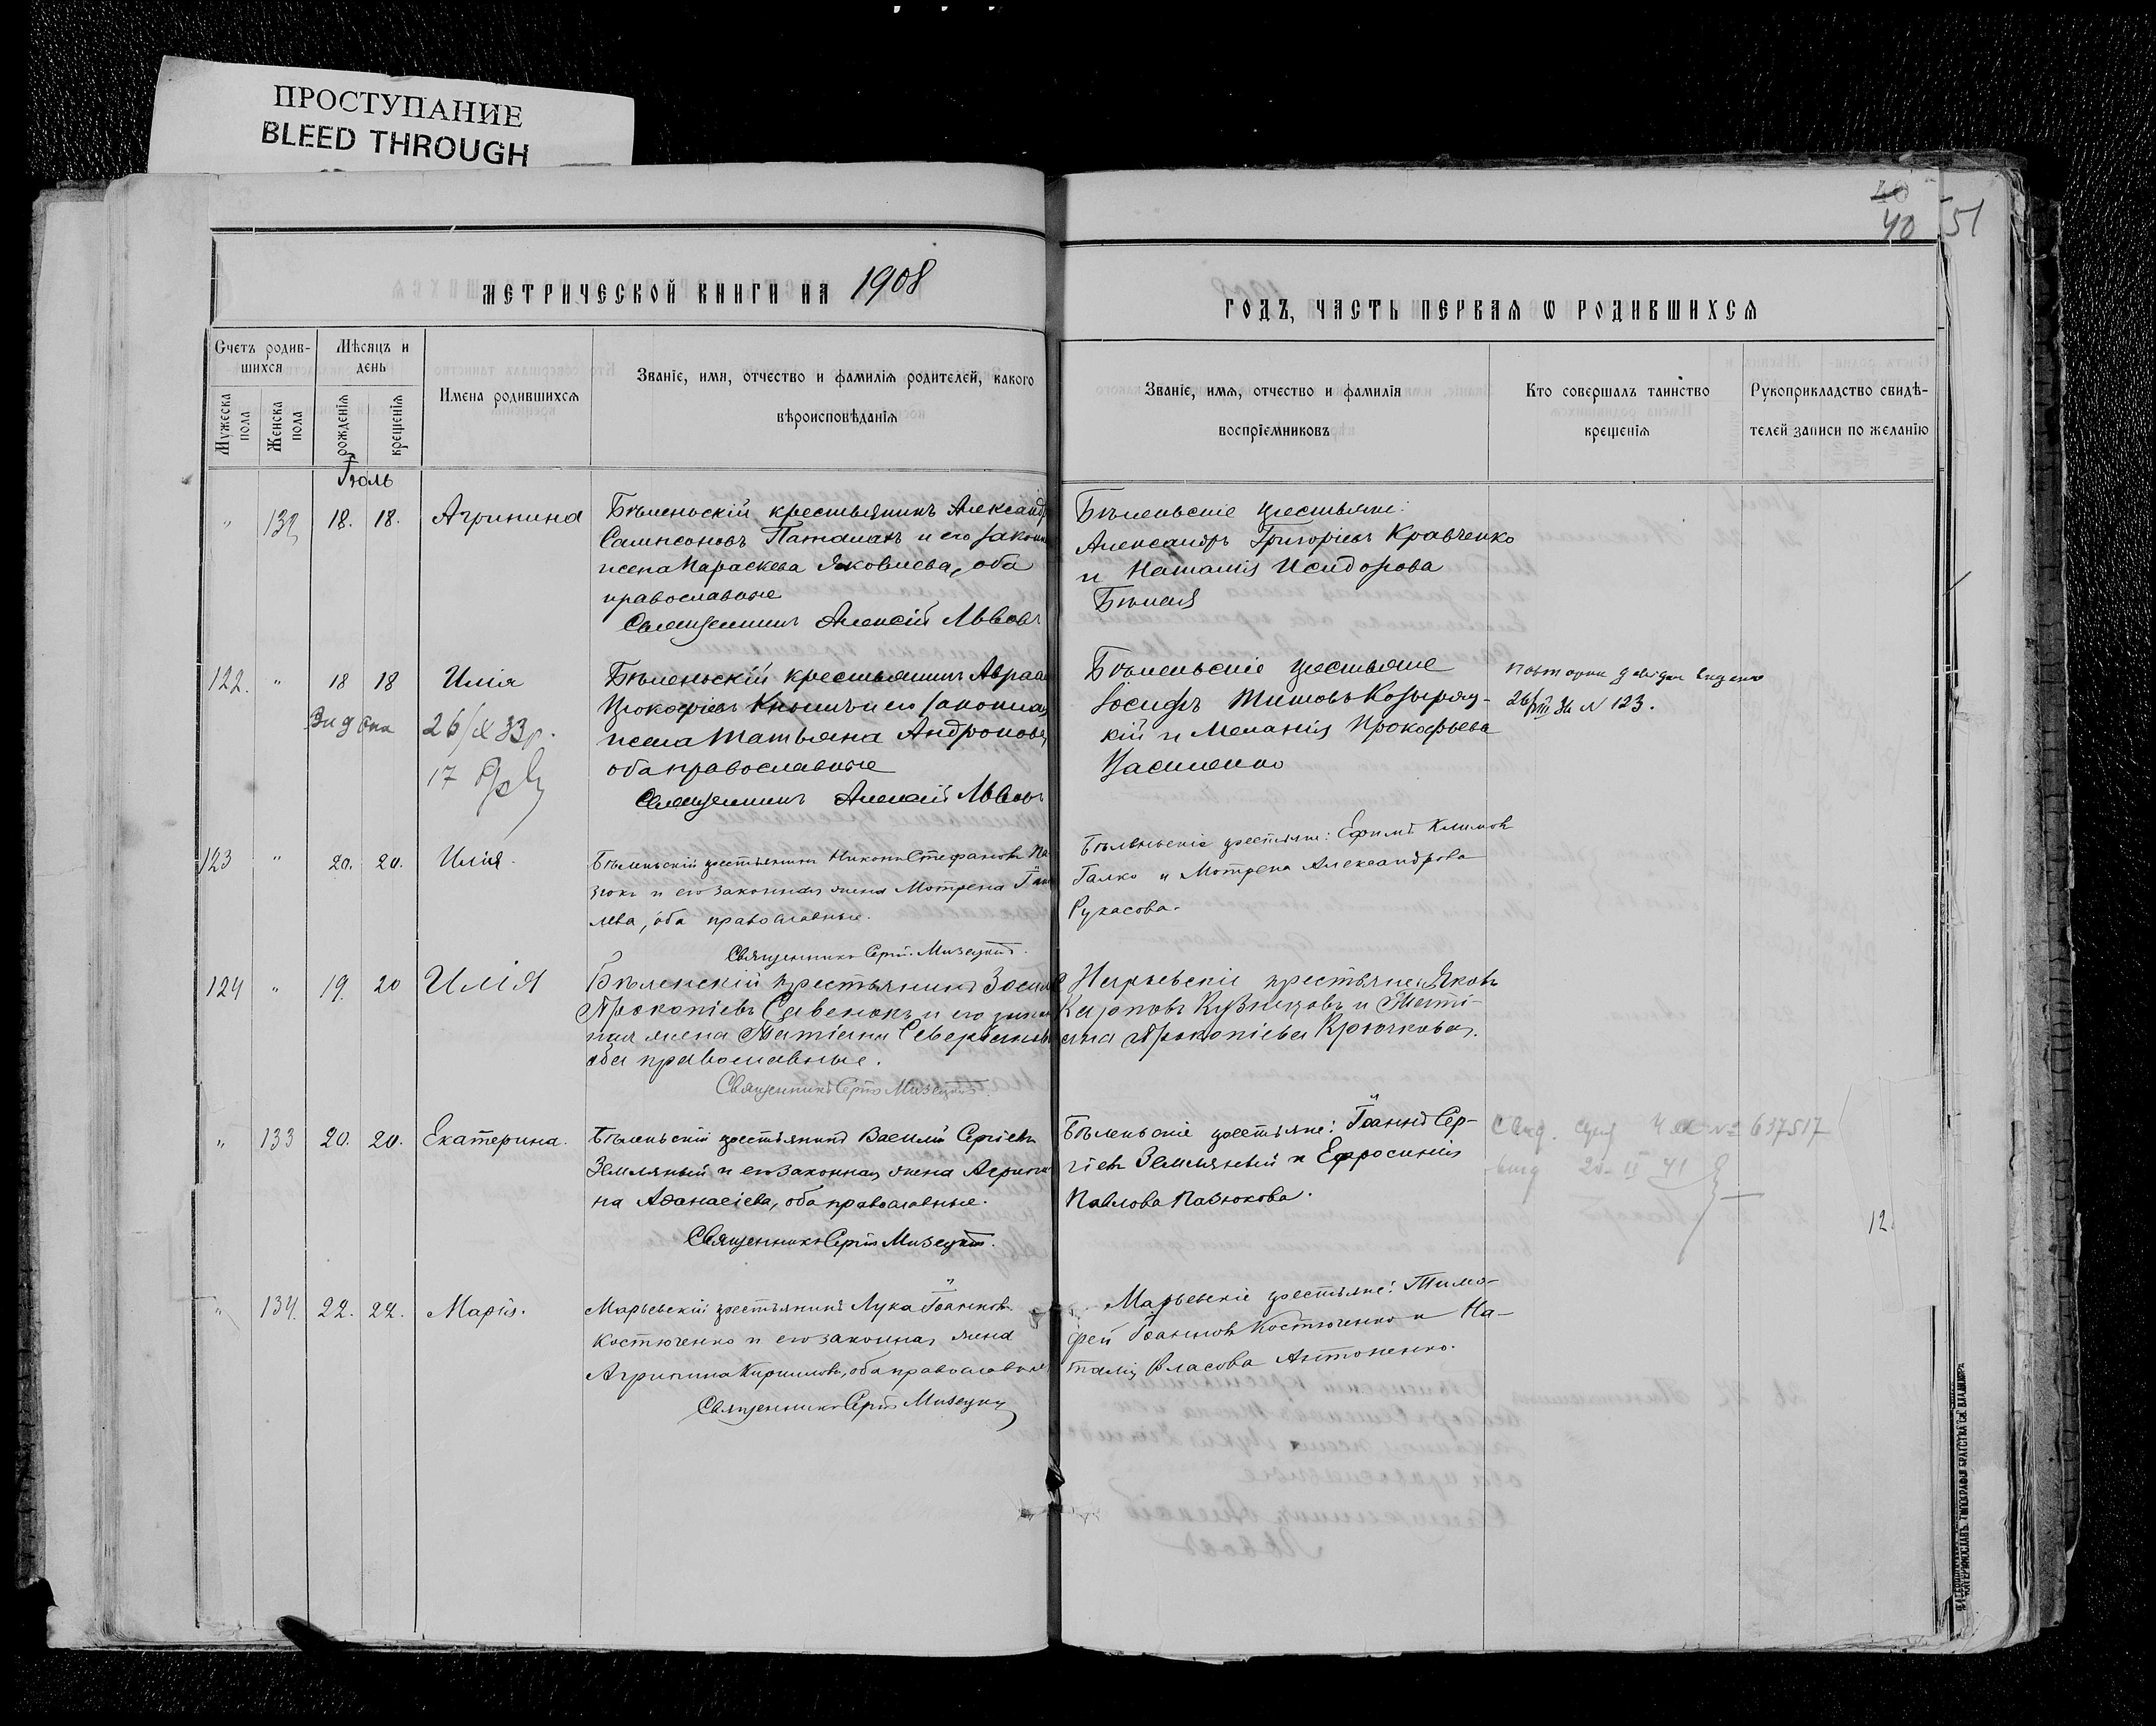 ПРОСТУПАНИЕ
BLEED THROUGH
40
40 51
МЕТРИЧЕСКОЙ КНИГИ НА 1908
ГОДЪ, ЧАСТЬ ПЕРВАЯ Ѡ РОДИВШИХСЯ
Счетъ родив-
шихся
Мужеска пола
Женска пола
Мѣсяцъ и
день
рожденія
крещенія
Имена родившихся
Званіе, имя, отчество и фамилія родителей, какого
вѣроисповѣданія
Званіе, имя, отчество и фамилія
воспріемниковъ
Кто совершалъ таинство
крещенія
Рукоприкладство свидѣ-
телей записи по желанію
Іюль
" 132 18. 18. Агрипина
Бѣленьскій крестьянинъ Александ
Сампсоновъ Паталахъ и его закон
жена Параскева Яковлева, оба
православные
Священникъ Алексій Львовъ
Бѣленьскіе крестьяне:
Александръ Григоріевъ Кравченко
и Наталія Исидорова
Бѣлая
122. " 18 18 Илія
26/X 33 р.
17
Бѣленьскій крестьянинъ Авраа
Прокофіевъ и его законная
жена Татьяна Андронова,
оба православные
Священникъ Алексій Львовъ
Бѣленьскіе крестьяне
Іосифъ Титовъ Козыряц-
кій и Меланія Прокофьева
Василенко
26/VIII 36 N 123.
123 " 20. 20. Илія.
Бѣленьскій крестьянинъ Никонъ Стефановъ Па
зюкъ и его законная жена Мотрена
лева, оба православные.
Священникъ Сергій Мизецкій.
Бѣленьскіе крестьяне: Ефимъ Климовъ
Галко и Мотрена Александрова
Рукасова.
124 " 19. 20 Илія
Бѣленскій крестьянинъ
Прокопіевъ Савенокъ и его закон
ная жена Татіана
оба православные.
Священникъ Сергій Мизецкій.
крестьяне: Яковъ
Карповъ Кузнецовъ и Таті-
ана Прокопіева Крючкова.
" 133 20. 20. Екатерина.
Бѣленьскій крестьянинъ Василій Сергіевъ
Земляный и его законная жена Агрипи
на Аѳанасіева, оба православные.
Священникъ Сергій Мизецкій.
Бѣленьскіе крестьяне: Іоаннъ Сер-
гіевъ Земляный и Ефросинія
Павлова Пазюкова.
№ 637517
20-II 41
12.
" 134. 22. 22. Марія.
Марьевскій крестьянинъ Лука Іоанновъ
Костюченко и его законная жена
Агрипина Кириллова, оба православные
Священникъ Сергій Мизецкій
Марьевскіе крестьяне: Тимо-
фей Іоанновъ Костюченко и На-
талія Власова Антоненко.